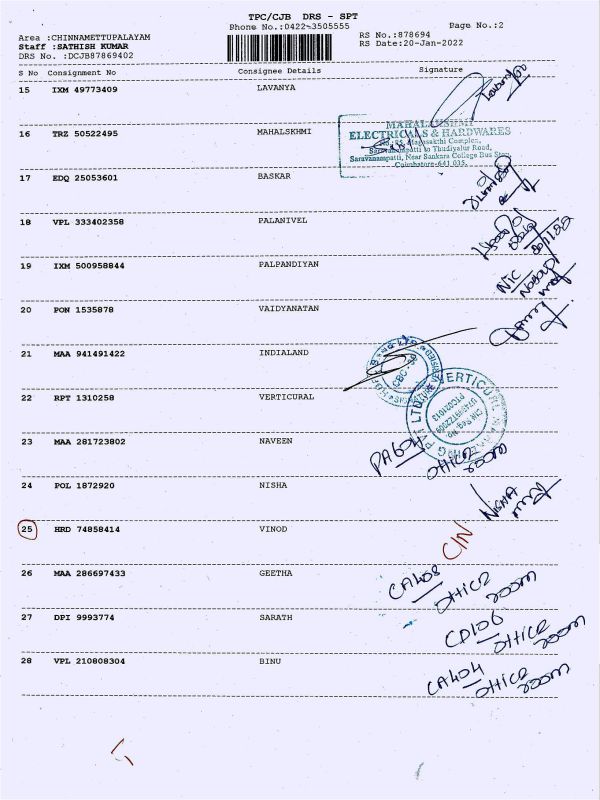 TPC/CJB DRS - SPT
Phone No.:0422-3505555
Page No.:2
Area :CHINNAMETTUPALAYAM
RS No.:878694
Staff :SATHISH KUMAR
RS Date:20-Jan-2022
DRS No. :DCJB87869402
S No Consignment No Consignee Details Signature
15 IXM 49773409 LAVANYA
16 TRZ 50522495 MAHALSKHMI
MAHALAKSHMI
ELECTRICALS & HARDWARES
Complex,
Saravanampatti to Thudiyalur Road,
Saravanampatti, Near Sankara College Bus Stop
Coimbatore-641 035.
17 EDQ 25053601 BASKAR
18 VPL 333402358 PALANIVEL
19 IXM 500958844 PALPANDIYAN
20 PON 1535878 VAIDYANATAN
21 MAA 941491422 INDIALAND
22 RPT 1310258 VERTICURAL
VERTICURL
PVT LTD
23 MAA 281723802 NAVEEN
OFFICE ROOM
24 POL 1872920 NISHA
NISHA
25 HRD 74858414 VINOD
CIN
26 MAA 286697433 GEETHA
CA408
OFFICE ROOM
27 DPI 9993774 SARATH
CD106
OFFICE ROOM
28 VPL 210808304 BINU
CA404
OFFICE ROOM